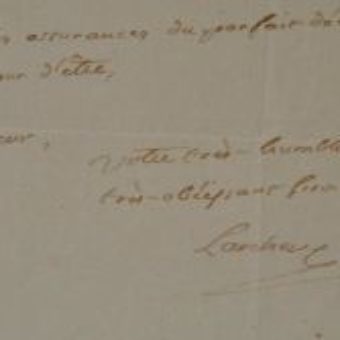 assurances du parfait dé
d'être,
eur,
votre très-humble
très-obéissant